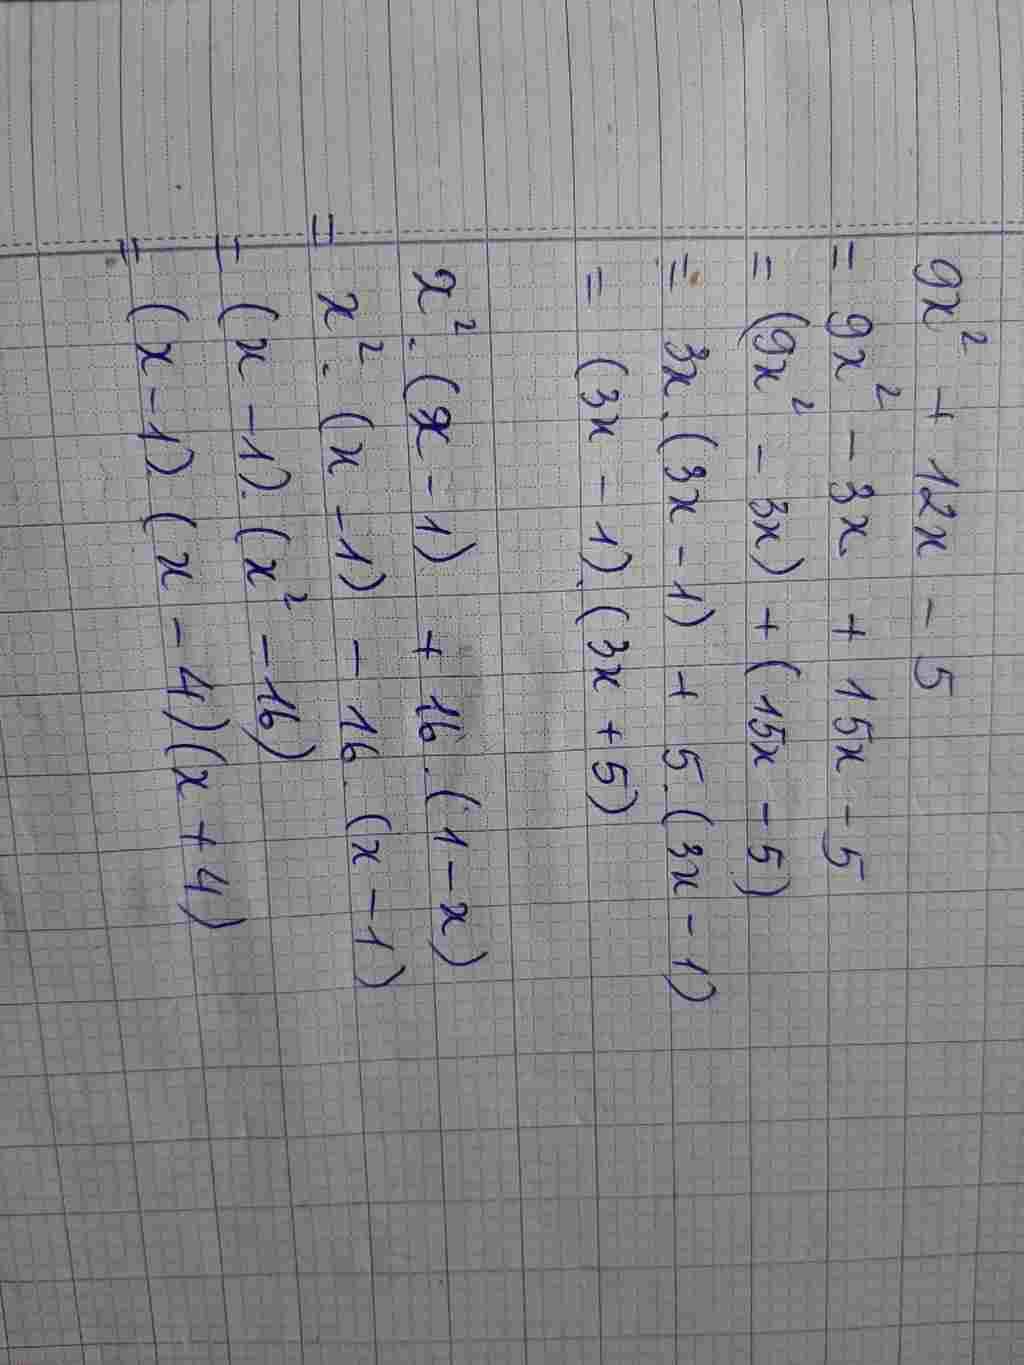 9x² + 12x - 5
= 9x² - 3x + 15x - 5
= (9x² - 3x) + (15x - 5)
= 3x.(3x - 1) + 5.(3x - 1)
= (3x - 1).(3x + 5)
x².(x - 1) + 16.(1 - x)
= x².(x - 1) - 16.(x - 1)
= (x - 1).(x² - 16)
= (x - 1).(x - 4)(x + 4)